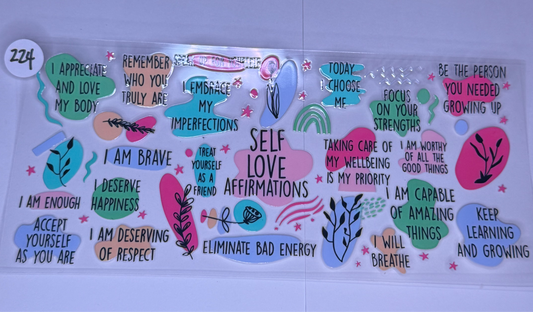 224
I APPRECIATE
AND LOVE
MY BODY
REMEMBER
WHO YOU
TRULY ARE
I EMBRACE
MY
IMPERFECTIONS
TODAY
I CHOOSE
ME
FOCUS
ON YOUR
STRENGTHS
BE THE PERSON
YOU NEEDED
GROWING UP
I AM BRAVE
TREAT
YOURSELF
AS A
FRIEND
SELF
LOVE
AFFIRMATIONS
TAKING CARE OF
MY WELLBEING
IS MY PRIORITY
I AM WORTHY
OF ALL THE
GOOD THINGS
I AM ENOUGH
I DESERVE
HAPPINESS
I AM CAPABLE
OF AMAZING
THINGS
ACCEPT
YOURSELF
AS YOU ARE
I AM DESERVING
OF RESPECT
ELIMINATE BAD ENERGY
I WILL
BREATHE
KEEP
LEARNING
AND GROWING